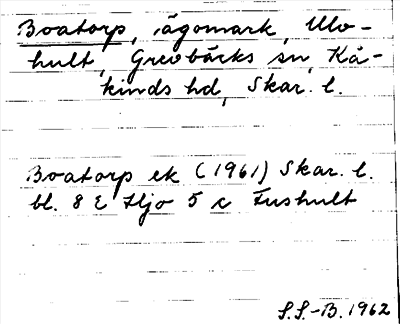 Boatorp, ägomark, Ulv-
hult, Grevbäcks sn, Kå-
kinds hd, Skar. l.
Boatorp ek (1961) Skar. l.
bl. 8 E Hjo 5 c Fushult
S.S.-B. 1962